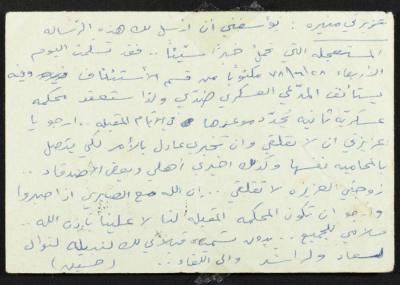 عزيزتي منيره : يؤسفني ان ارسل لك هذه الرساله
المستعجله التي تحمل خبراً سيّئاً .. فقد تسلمت اليوم
الأربعاء ٧٨/٦/٢٨ مكتوباً من قسم الأستئناف وفيه
يستأنف المدّعي العسكري ضدّي ولذا ستعقد محكمه
عسكرية ثانية يحدد موعدها في الأيام المقبله .. ارجو يا
عزيزتي ان لا تقلقي وان تخبري عادل بالأمر لكي يتصل
بالمحاميه نفسها وكذلك اخبري أهلي وبعض الأصدقاء ..
زوجتي العزيزه لا تقلقي ... ان الله مع الصابرين اذا صبروا
وارجو ان تكون المحكمه المقبله لنا لا علينا بإذن الله ..
سلامي للجميع ... بدون تسميه قبلاتي لك لنبيله لنوال
لسعاد ولراشد والى اللقاء ..